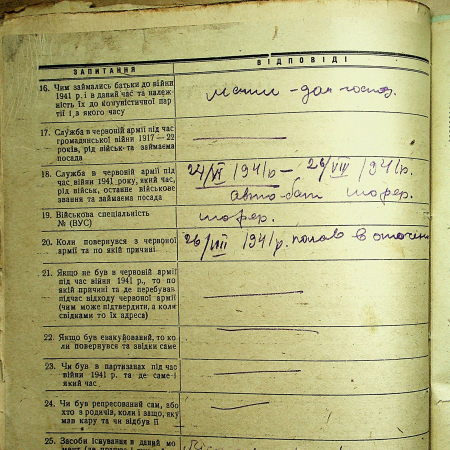 ЗАПИТАННЯ
ВІДПОВІДІ
16. Чим займались батьки до війни
1941 р. і в даний час та належ-
ність їх до комуністичної пар
тії і з якого часу
Мати - дом госпо.
17. Служба в червоній армії під час
громадянської війни 1917—22
років, рід військ та займаєма
посада
18. Служба в червоній армії під
час війни 1941 року, який час,
рід військ, останнє військове
звання та займаєма посада
24/VI 1941р — 26/VIII 1941р.
авто-бат шофер.
19. Військова спеціальність
№ (ВУС)
шофер.
20. Коли повернувся з червоної
армії та по якій причині
26/VIII 1941р. попав в оточен
21. Якщо не був в червоній армії
під час війни 1941 р., то по
якій причині та де перебував
підчас відходу червоної армії
(чим може підтвердити, а коли
свідками то їх адреса)
22. Якщо був евакуйований, то ко
ли повернувся та звідки саме
23. Чи був в партизанах під час
війни 1941 р. та де саме і
який час
24. Чи був репресований сам, або
хто з родичів, коли і защо, яку
мав кару та чи відбув її
25. Засоби існування в даний мо